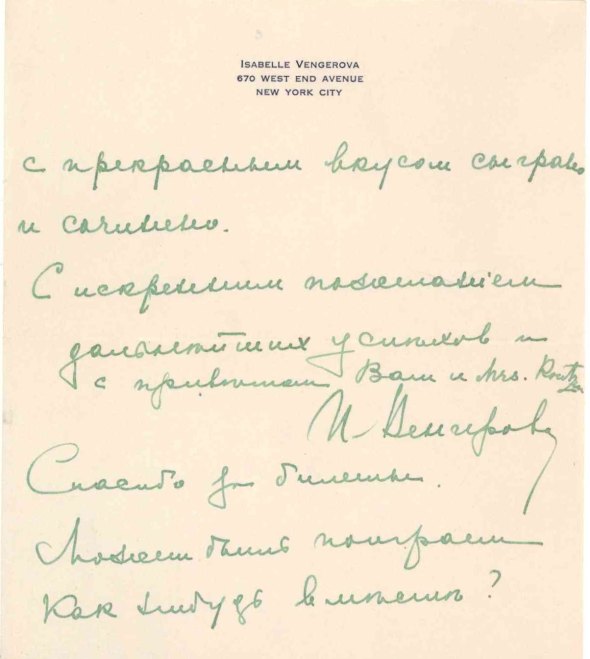 ISABELLE VENGEROVA
670 WEST END AVENUE
NEW YORK CITY
с прекрасным вкусом сыграно
и сочинено.
С искренним пожеланіем
дальнѣйших успѣхов и
с привѣтом Вам и Mrs.
И. Венгерова
Спасибо за билеты.
Может быть поиграем
как нибудь вмѣстѣ?